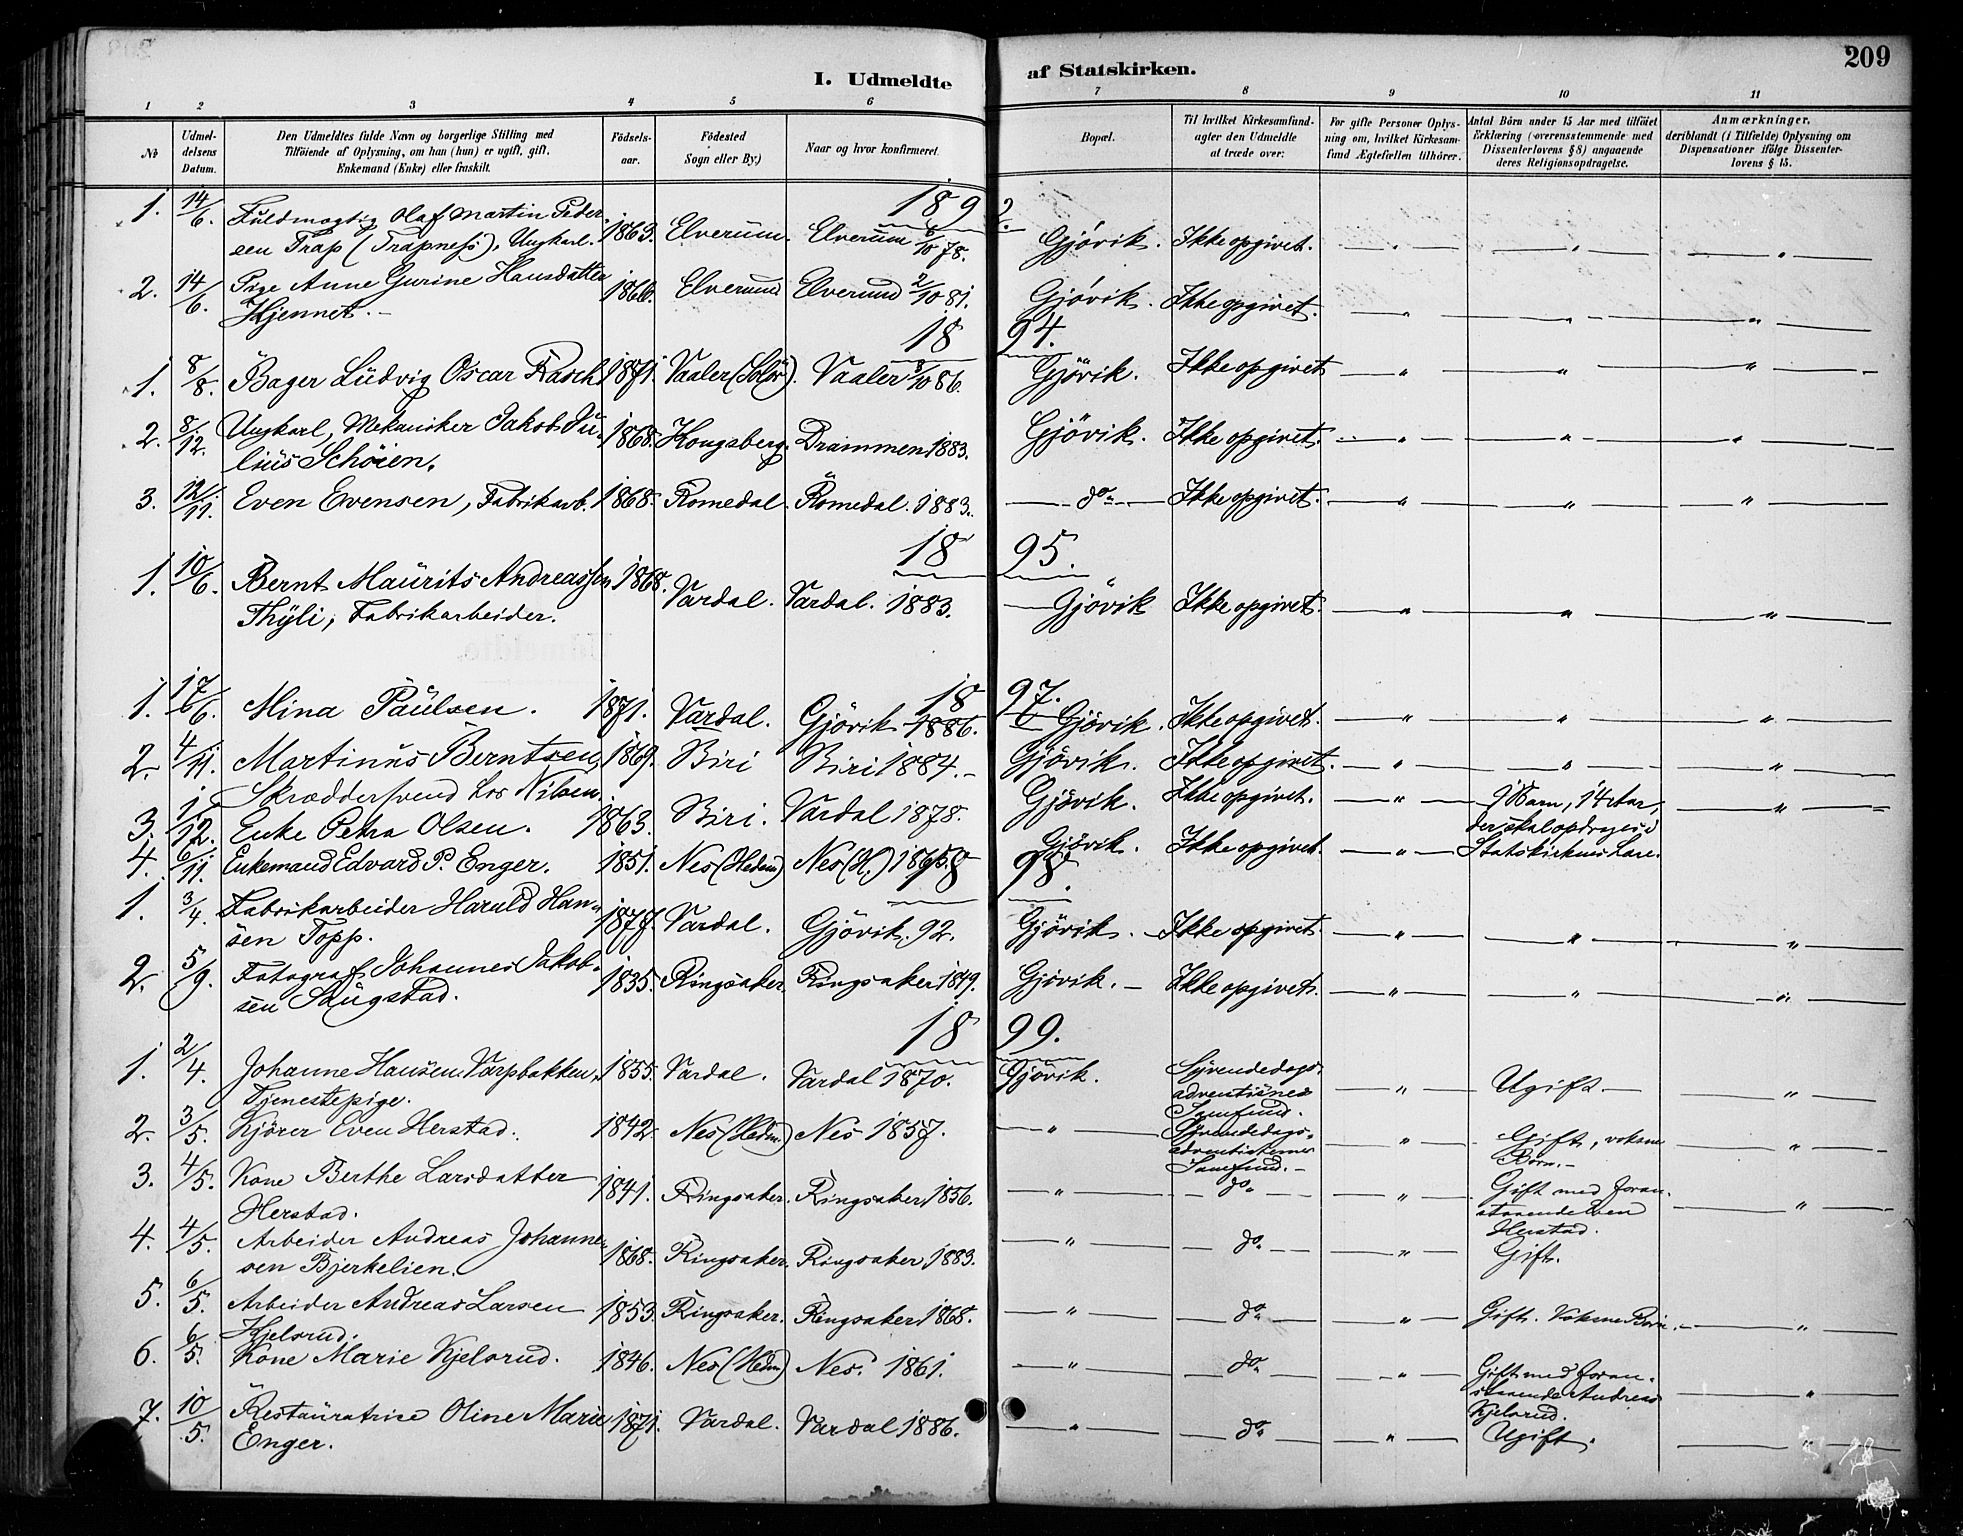 209
I. Udmeldte af Statskirken.
1 2 3 4 5 6 7 8 9 10 11
No
Udmeldelsens Datum.
Den Udmeldtes fulde Navn og borgerlige Stilling med
Tilföiende af Oplysning, om han (hun) er ugift, gift,
Enkemand (Enke) eller fraskilt.
Födselsaar.
Födested
Sogn eller By.)
Naar og hvor konfirmeret.
Bopæl.
Til hvilket Kirkesamfund-
agter den Udmeldte
at træde over.
For gifte Personer Oplys-
ning om, hvilket Kirkesam-
fund Ægtefællen tilhörer.
Antal Börn under 15 Aar med tilföiet
Erklæring (overensstemmende med
Dissenterlovens § 8) angaaende
deres Religionsopdragelse.
Anmærkninger,
deriblandt (i Tilfælde) Oplysning om
Dispensationer ifölge Dissenter-
lovens § 15.
1892.
1. 14/6. Fuldmægtig Olaf Martin Peder-
sen Trap (Trapness), Ungkarl. 1863. Elverum. Elverum 6/10 78. Gjövik. Ikke opgivet. " " "
2. 14/6. Pige Anne Gurine Hansdatter
Hjennet. 1866. Elverum Elverum 2/10 81. Gjövik. Ikke opgivet. " " "
1894.
1. 8/8. Bager Ludvig Oscar Rasch 1871. Vaaler (Solör). Vaaler 3/10 86. Gjövik. Ikke opgivet " " "
2. 8/12. Ungkarl, Mekaniker Jakob Ju-
lius Schöien. 1868. Kongsberg. Drammen 1883. Gjövik. Ikke opgivet. " " "
3. 12/11. Even Evensen, Fabrikarb. 1868. Romedal. Romedal. 1883. do Ikke opgivet. " " "
1895.
1. 10/6. Bernt Maurits Andreassen
Thyli, Fabrikarbeider. 1868. Vardal. Vardal. 1883. Gjövik Ikke opgivet. " " "
1897.
1. 17/6. Mina Paulsen. 1871. Vardal. Gjövik 1886. Gjövik. Ikke opgivet. " " "
2. 4/11. Martinus Berntsen,
Skræddersvend hos Nilsen. 1869. Biri Biri 1884. Gjövik. Ikke opgivet. " " "
3. 1/12. Enke Petra Olsen. 1863. Biri. Vardal 1878. Gjövik. Ikke opgivet. " 1 Barn, 14 Aar,
der skal opdrages i
Statskirkens Lære. "
4. 6/11. Enkemand Edvard P. Enger. 1851. Nes (Hedm) Nes (H.) 1865. Gjövik. Ikke opgivet. "
1898.
1. 3/4. Fabrikarbeider Harald Han-
sen Topp. 1877. Vardal. Gjövik. 92. Gjövik. Ikke opgivet. " " "
2. 5/9. Fotograf Johannes Jakob-
sen Skugstad. 1835. Ringsaker. Ringsaker 1849. Gjövik. Ikke opgivet. " " "
1899.
1. 2/4. Johanne Hansen Varpbakken,
Tjenestepige. 1855. Vardal. Vardal 1870. Gjövik. Syvendedags-
adventisnes
Samfund. " Ugift "
2. 3/5. Kjörer Even Herstad. 1842. Nes (Hedm.) Nes 1857. " Syvendedags-
adventisternes
Samfund. " Gift, voksne
Börn. "
3. 4/5. Kone Berthe Larsdatter
Herstad. 1841. Ringsaker. Ringsaker 1856. " do " Gift med foran-
staaende Even
Herstad. "
4. 4/5. Arbeider Andreas Johanne-
sen Bjerkelien. 1868. Ringsaker. Ringsaker 1883. " do " Gift.
5. 6/5. Arbeider Andreas Larsen
Kjelsrud. 1853. Ringsaker. Ringsaker 1868. " do " Gift. Voksne Börn. "
6. 6/5. Kone Marie Kjelsrud. 1846. Nes (Hedm) Nes. 1861. " do " Gift med foran-
staaende Andreas
Kjelsrud. "
7. 10/5. Restauratrice Oline Marie
Enger. 1871. Vardal. Vardal 1886. " do " Ugift. "